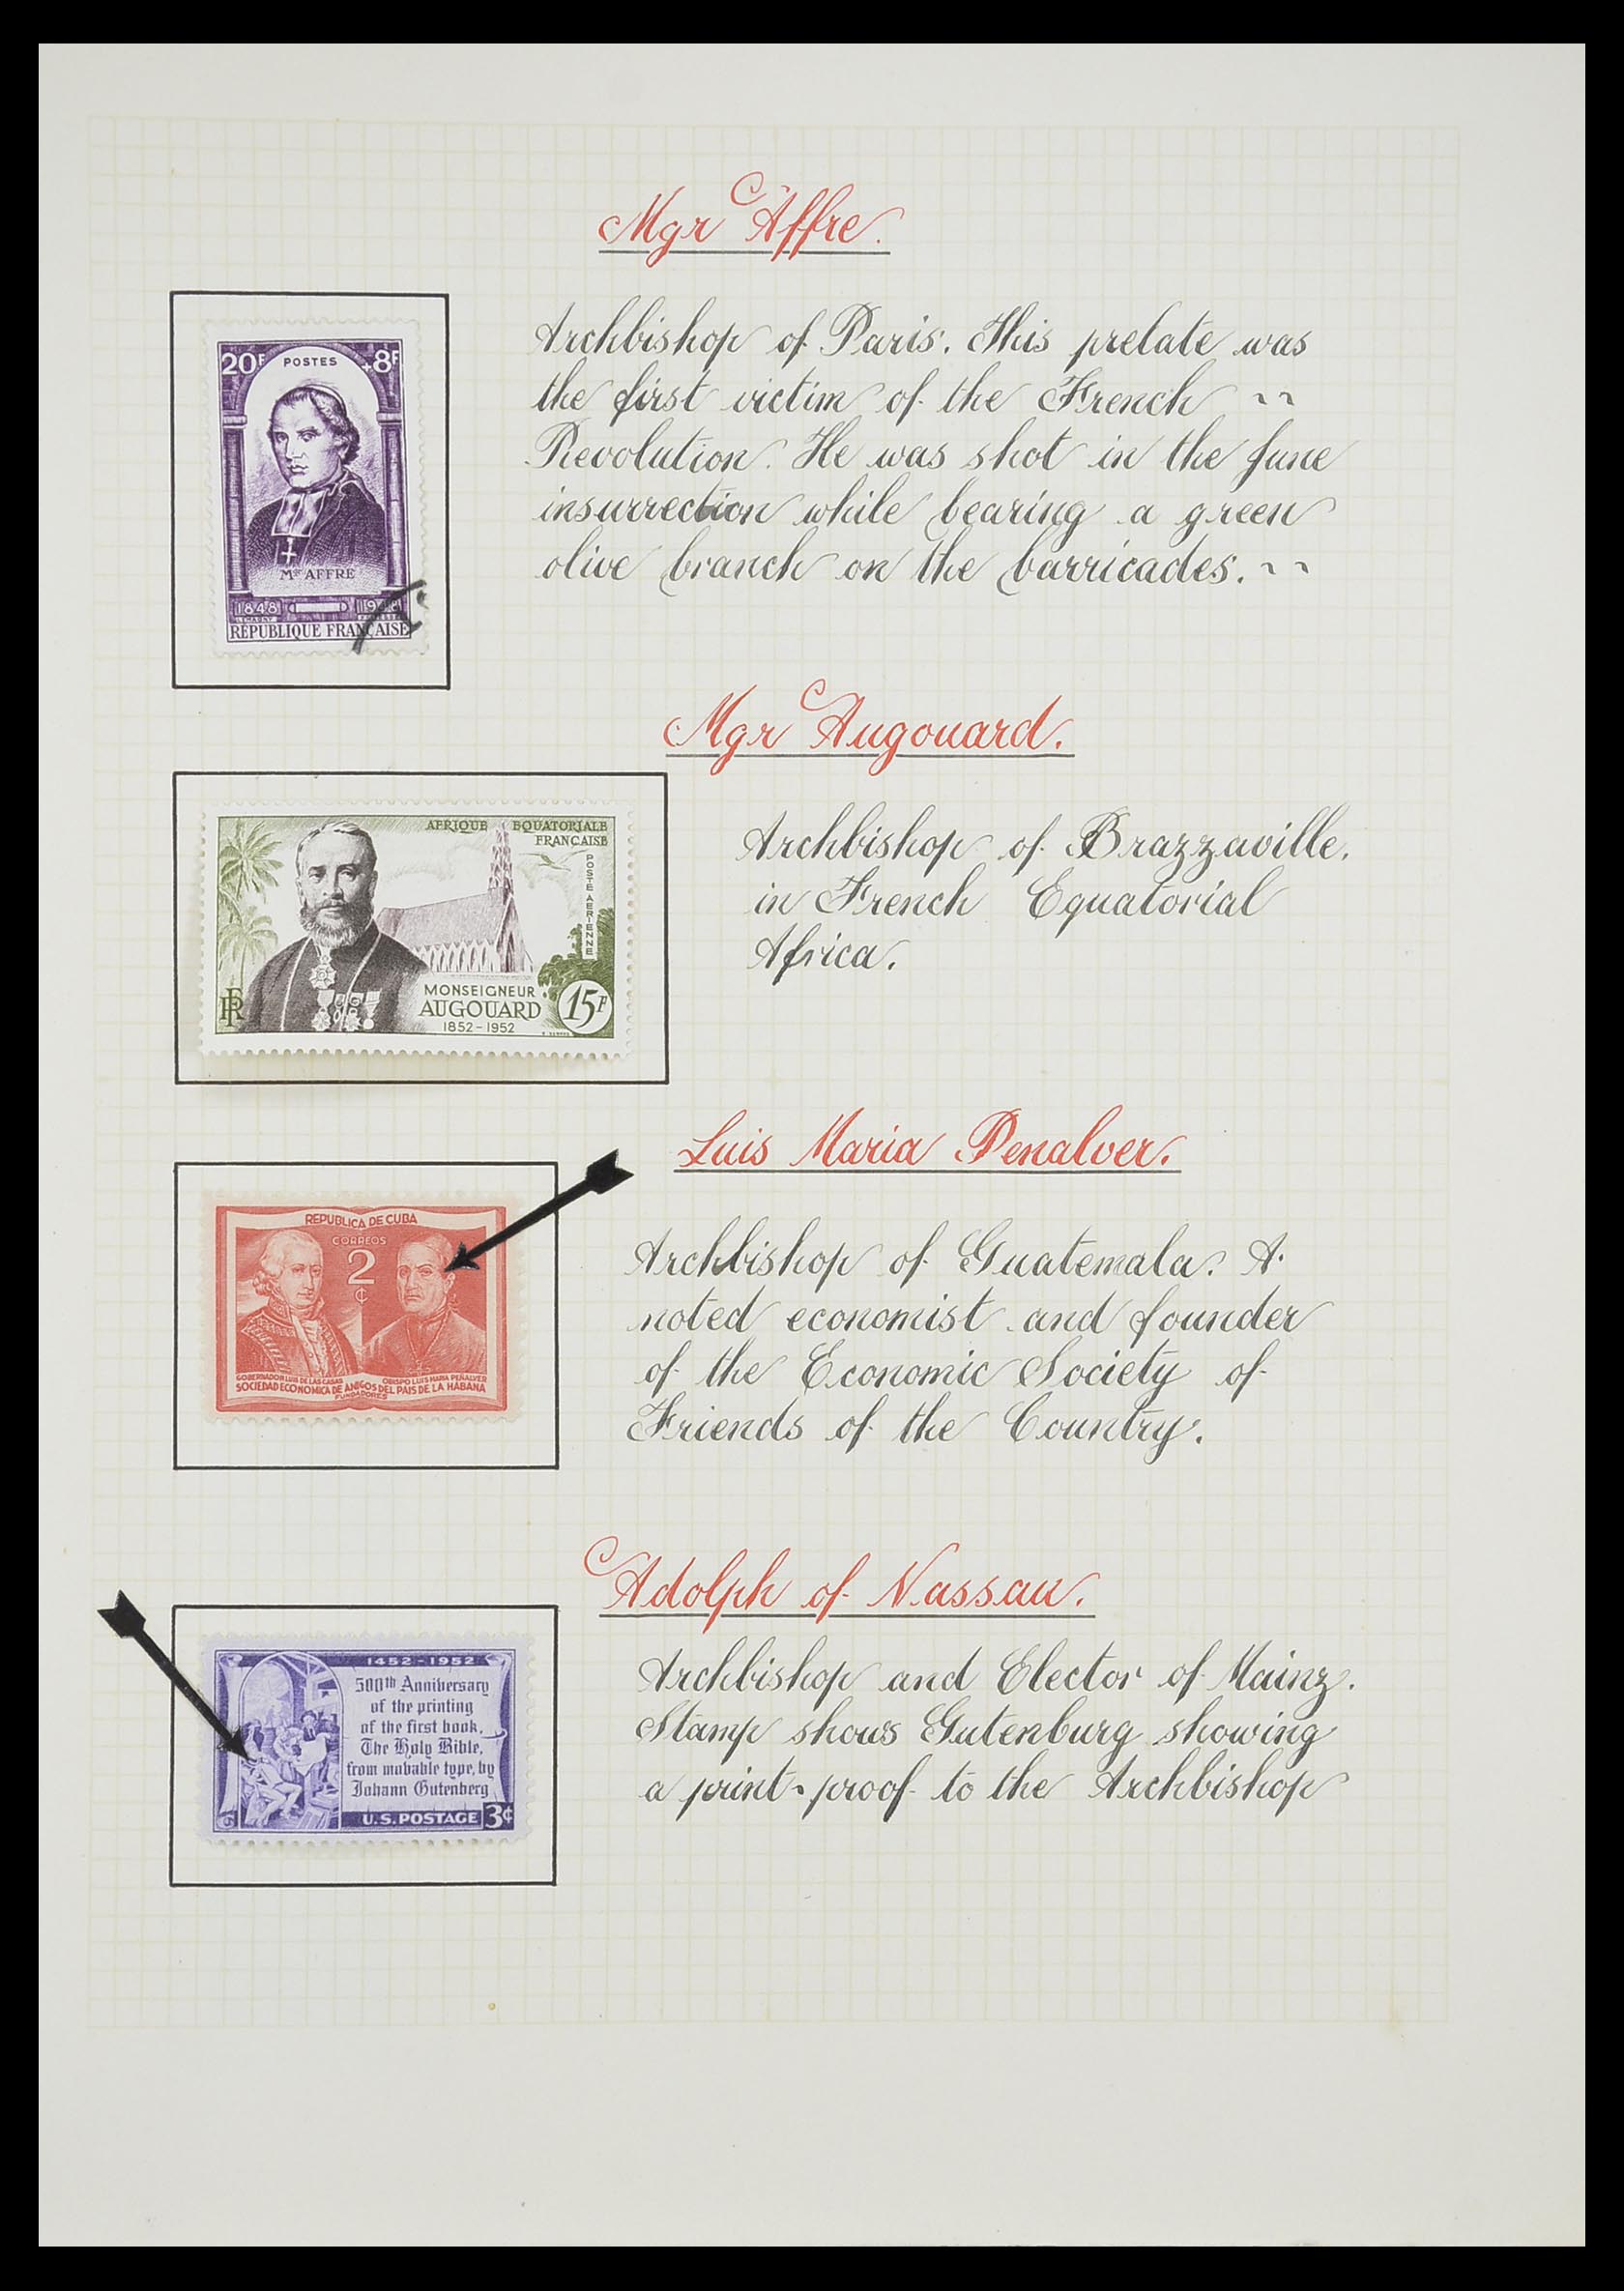 Mgr Affre.
20F POSTES +8F
Mgr AFFRE
1848 1948
REPUBLIQUE FRANÇAISE
Archbishop of Paris. This prelate was
the first victim of the French ~~
Revolution. He was shot in the June
insurrection while bearing a green
olive branch on the barricades. ~~
Mgr Augouard.
AFRIQUE EQUATORIALE
FRANÇAISE
POSTE AERIENNE
RF
MONSEIGNEUR
AUGOUARD
1852-1952
15F
Archbishop of Brazzaville.
in French Equatorial
Africa.
Luis Maria Penalver.
REPUBLICA DE CUBA
CORREOS
2
¢
GOBERNADOR LUIS DE LAS CASAS OBISPO LUIS MARIA PEÑALVER
SOCIEDAD ECONOMICA DE AMIGOS DEL PAIS DE LA HABANA
FUNDADORES
Archbishop of Guatemala. A
noted economist and founder
of the Economic Society of
Friends of the Country.
Adolph of Nassau.
1452-1952
500th Anniversary
of the printing
of the first book,
The Holy Bible,
from movable type, by
Johann Gutenberg
U.S. POSTAGE 3¢
Archbishop and Elector of Mainz.
Stamp shows Gutenburg showing
a print-proof to the Archbishop